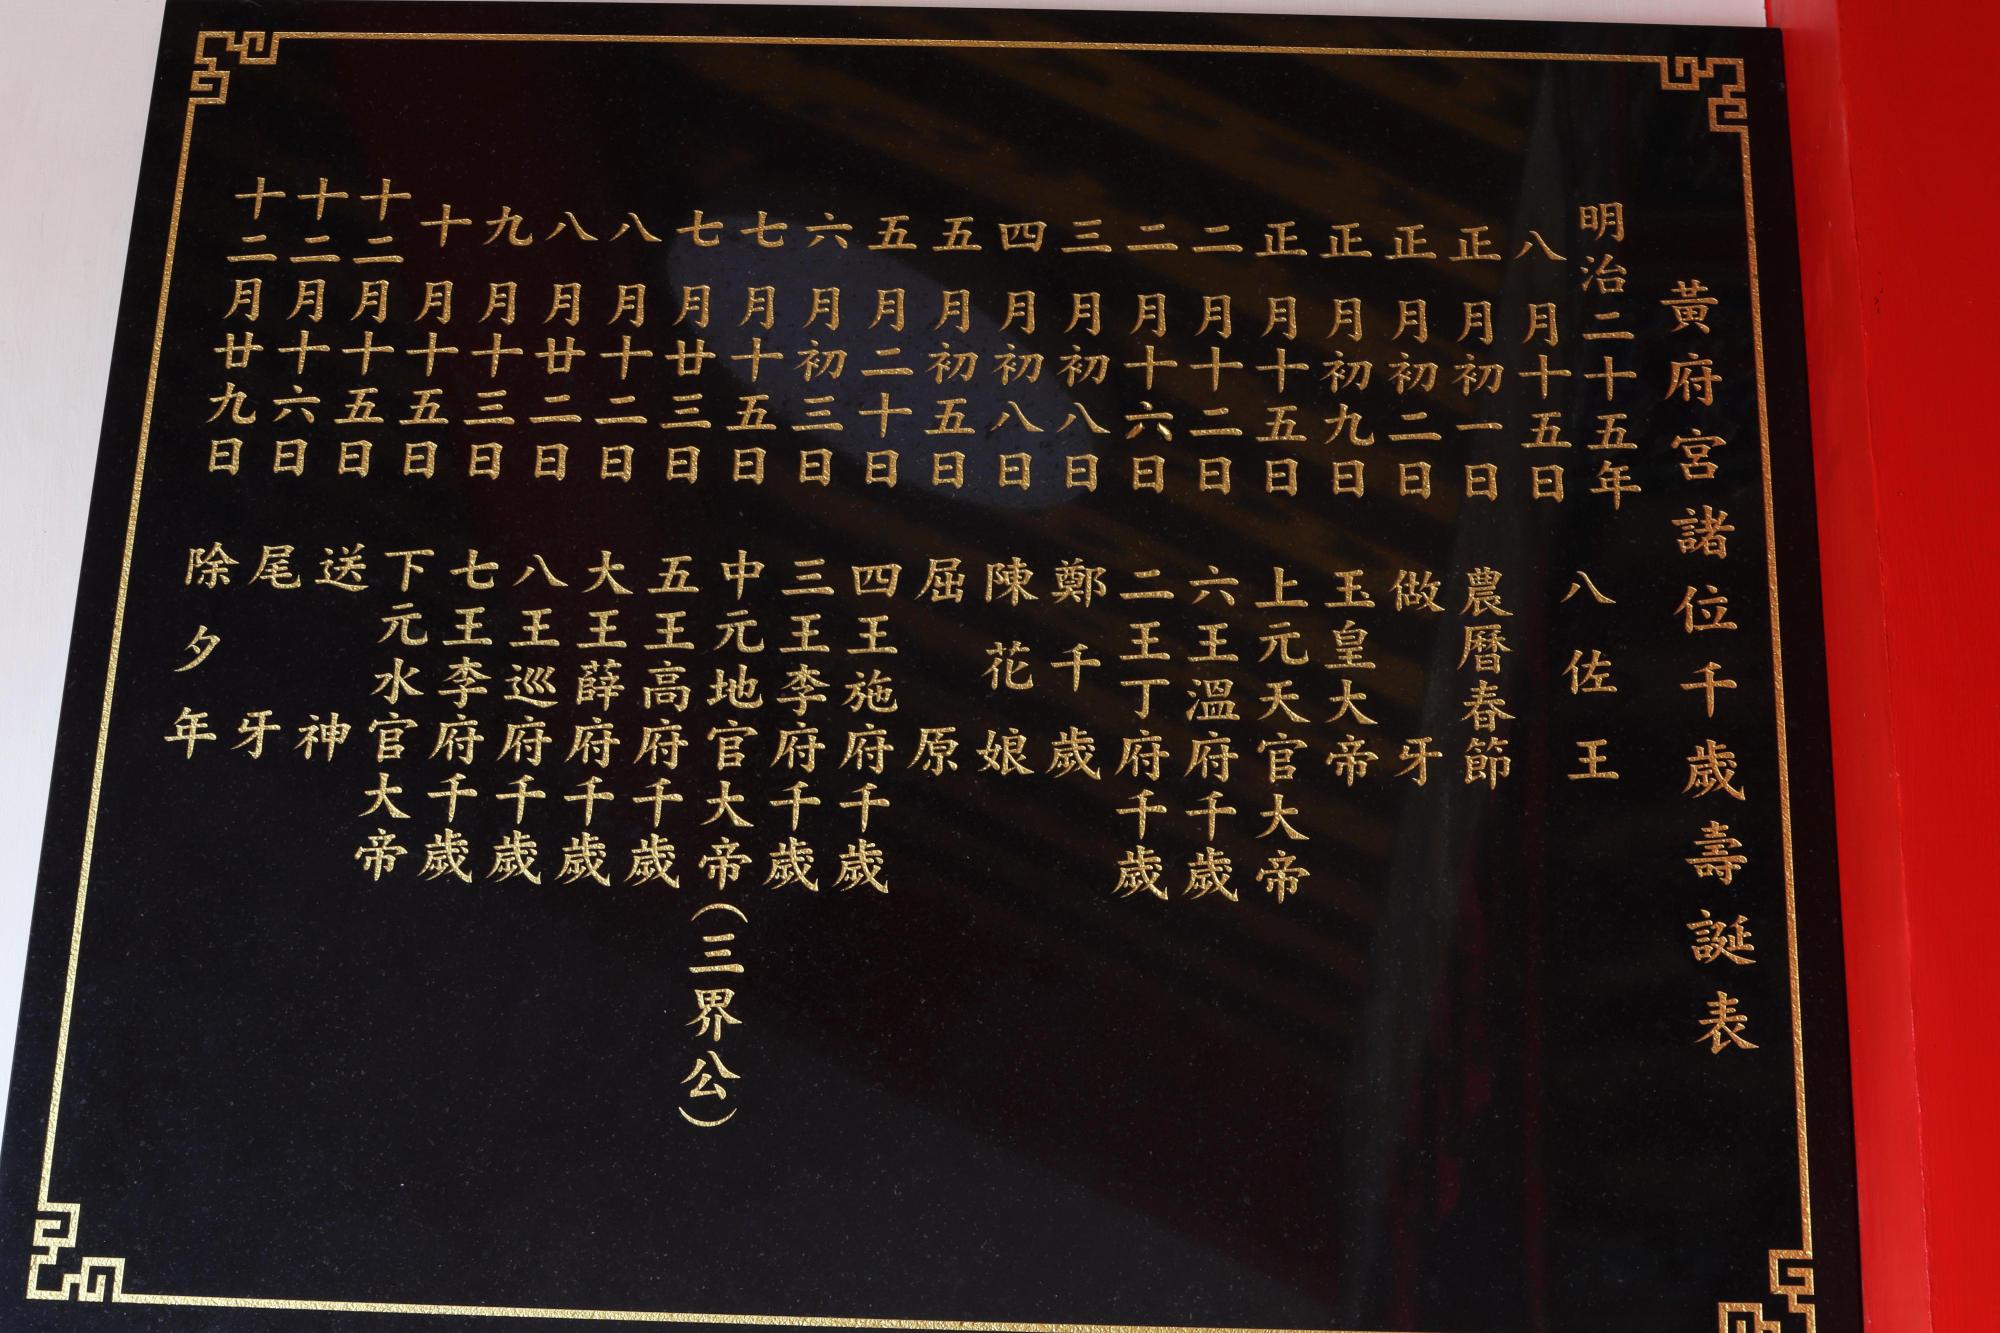 黃府宮諸位千歲壽誕表
明治二十五年
八月十五日 八佐王
正月初一日 農暦春節
正月初二日 做牙
正月初九日 玉皇大帝
正月十五日 上元天官大帝
二月十二日 六王溫府千歲
二月十六日 二王丁府千歲
三月初八日 鄭千歲
四月初八日 陳花娘
五月初五日 屈原
五月二十日 四王施府千歲
六月初三日 三王李府千歲
七月十五日 中元地官大帝(三界公)
七月廿三日 五王高府千歲
八月十二日 大王薛府千歲
八月廿二日 八王巡府千歲
九月十三日 七王李府千歲
十月十五日 下元水官大帝
十二月十五日 送神
十二月十六日 尾牙
十二月廿九日 除夕年